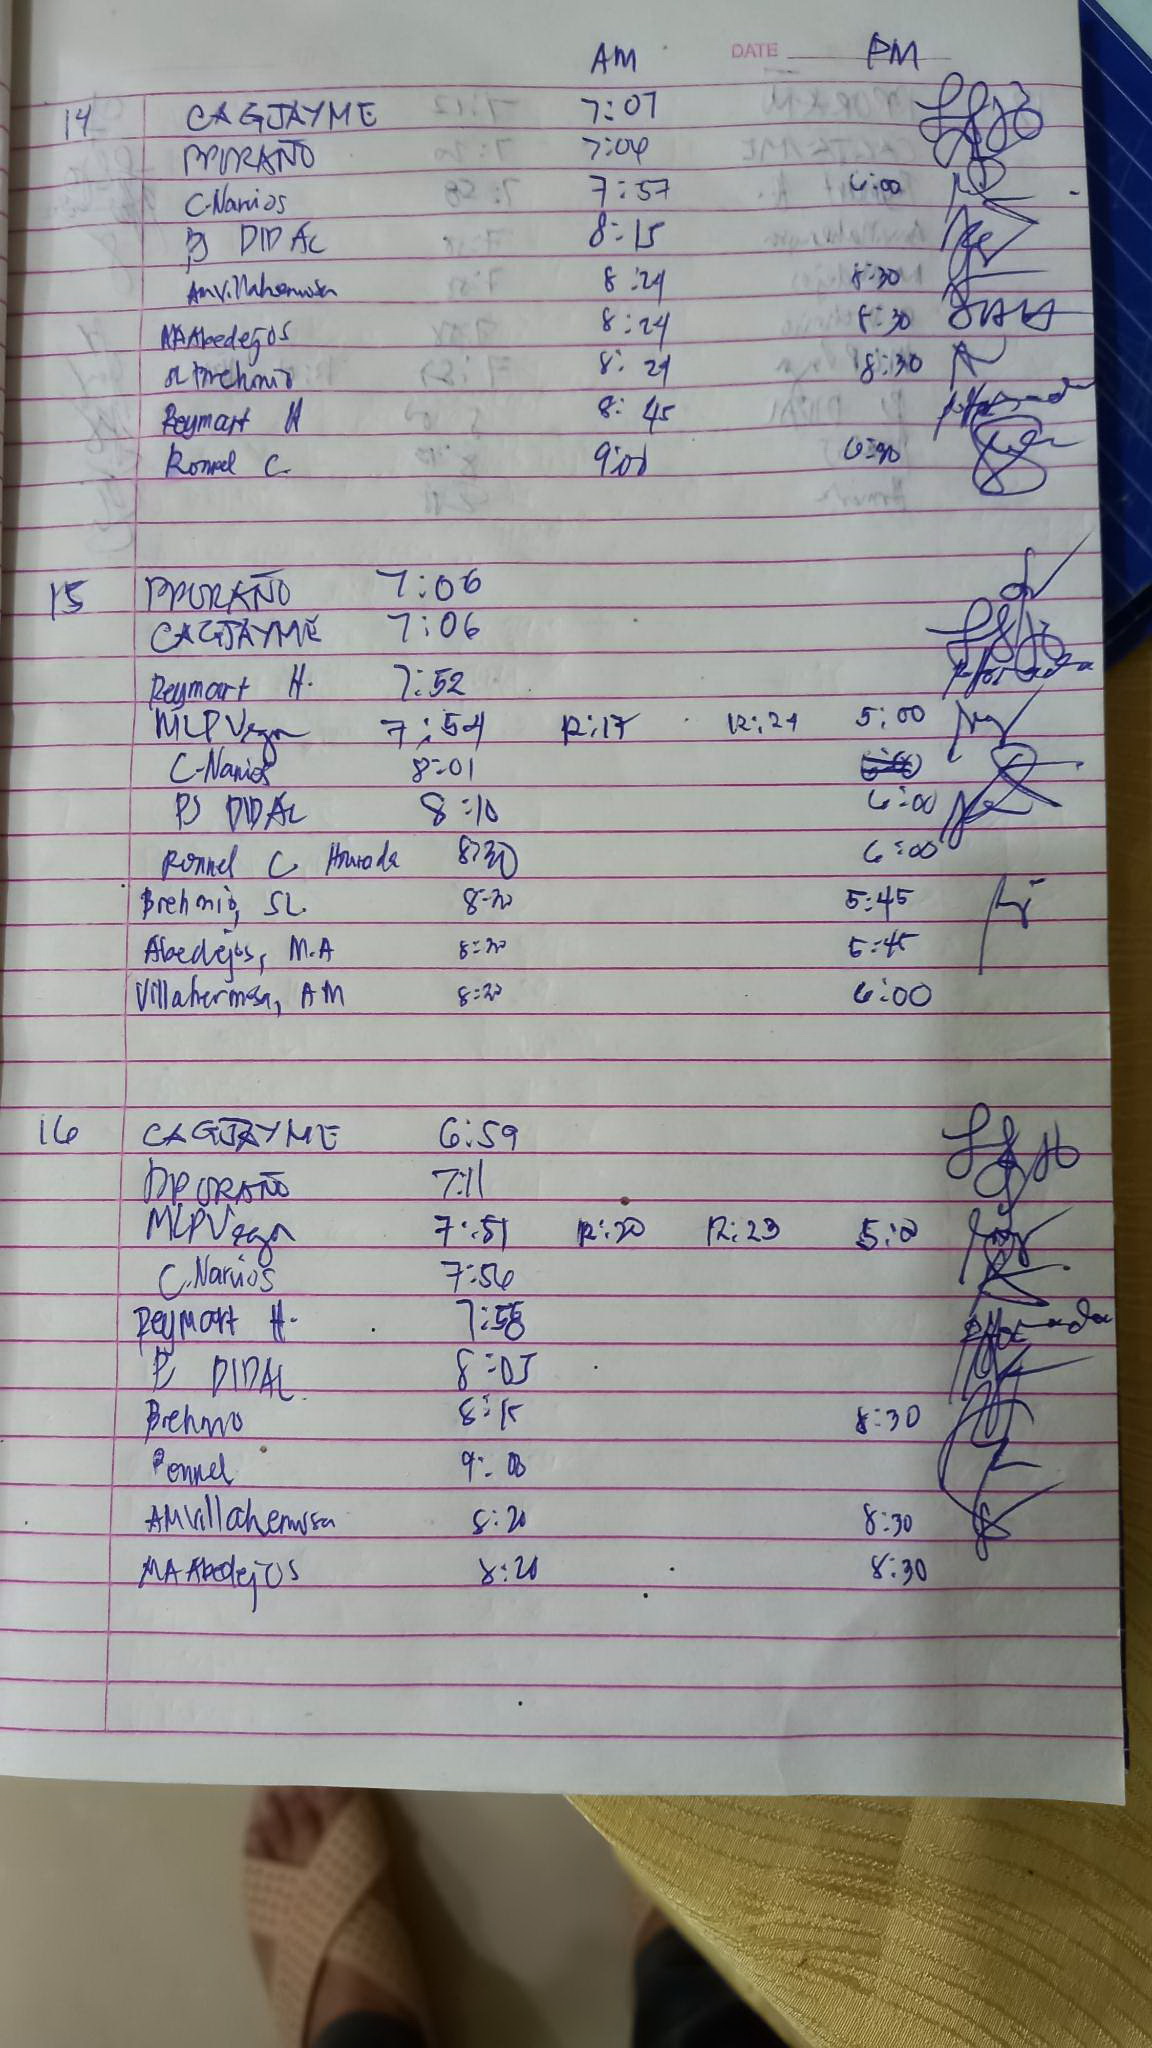 AM DATE PM
14 CAGJAYME 7:07
PPURAÑO 7:04
C-Narios 7:57 6:00
PJ DIDAL 8:15
AMVillahermosa 8:24 8:30
MAAbedejos 8:24 8:30
SLBrehmio 8:24 8:30
Reymart H 8:45
Ronnel C. 9:00 6:30
15 PPURAÑO 7:06
CAGJAYME 7:06
Reymart H. 7:52
MLPVega 7:54 12:17 12:21 5:00
C-Narios 8:01
PJ DIDAL 8:10 6:00
Ronnel C Honrada 8:30 6:00
Brehmio, SL. 8:20 5:45
Abedejos, M.A 8:20 5:45
Villahermosa, AM 8:20 6:00
16 CAGJAYME 6:59
PPURAÑO 7:11
MLPVega 7:51 12:20 12:23
C.Narios 7:56
Reymart H. 7:58
PJ DIDAL 8:05
Brehmio 8:15 8:30
Ronnel 9:00
AMVillahermosa 8:20 8:30
MAAbedejos 8:20 8:30